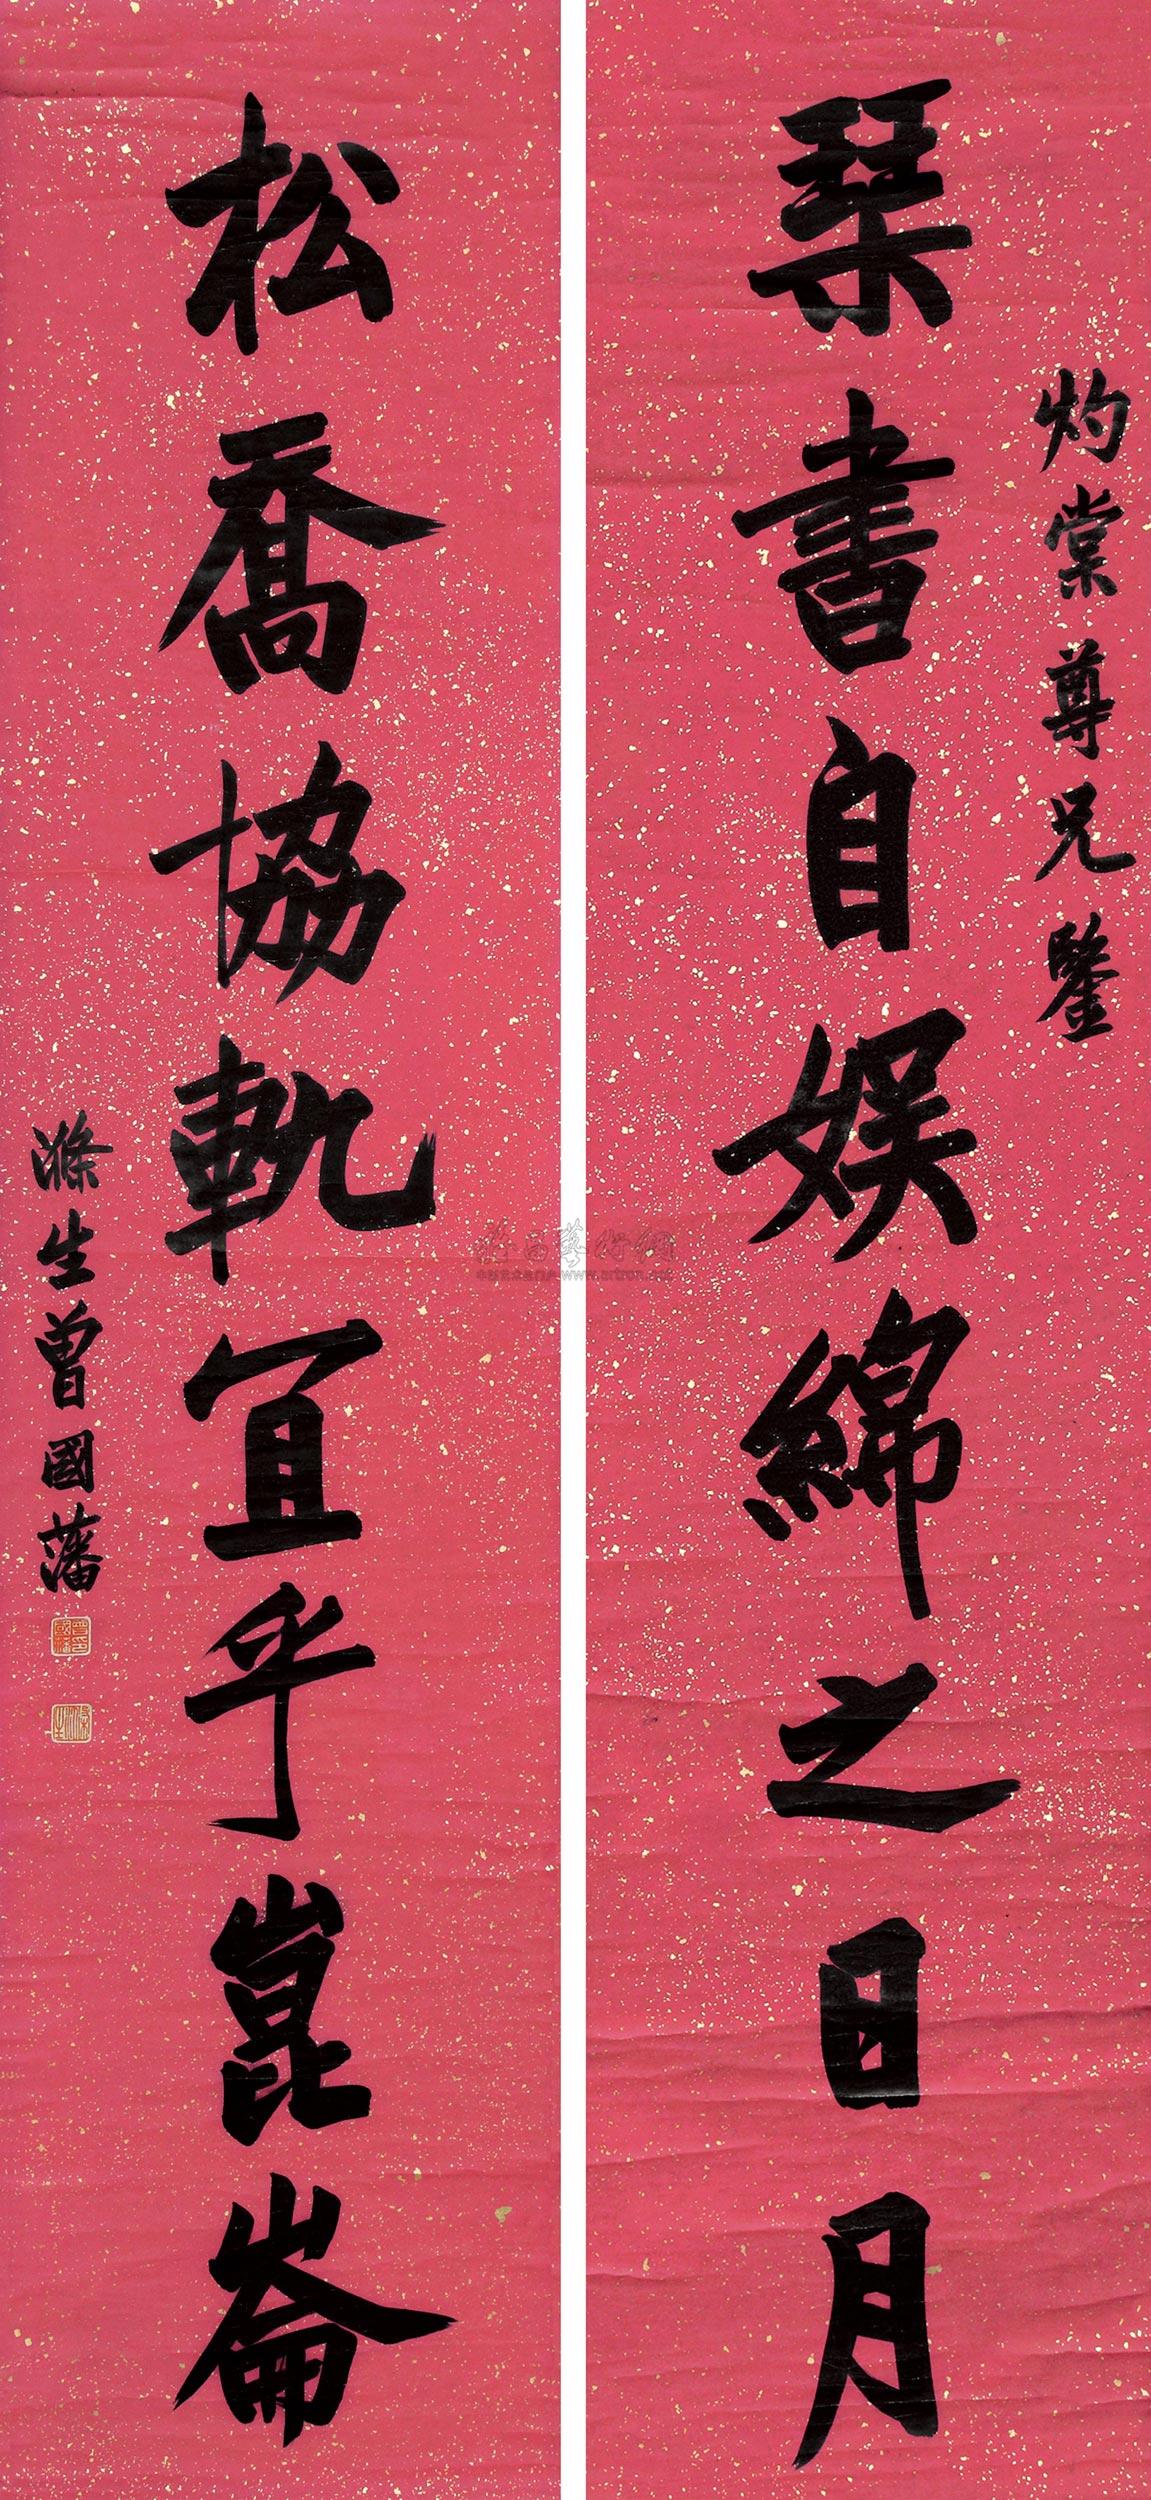 灼棠尊兄鑒
琴書自娛綿之日月
松喬協軌宜乎崑崙
滌生曾國藩
www.artron.net